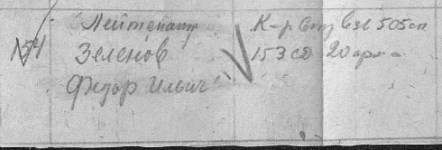 Лейтенант
151 Зеленов
Федор Ильич
К-р взв 505сп
153 сд 20 арм